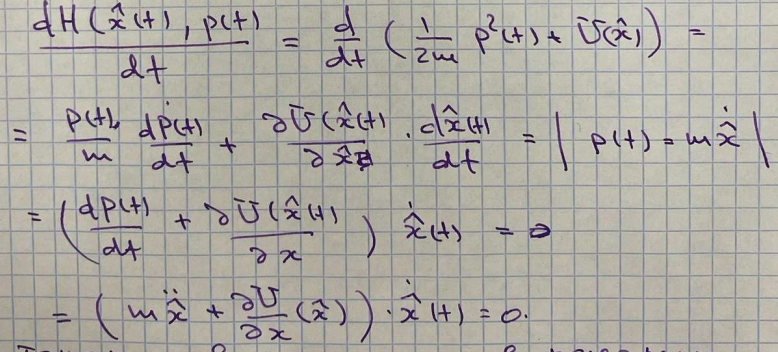 dH(x̂(t), p(t))/dt = d/dt (1/2m p²(t) + U(x̂)) =
= p(t)/m dp(t)/dt + ∂U(x̂(t)/∂x̂ · dx̂(t)/dt = | p(t) = m ẋ̂ |
= (dp(t)/dt + ∂U(x̂(t)/∂x) ẋ̂(t) = 0
= (m ẍ̂ + ∂U/∂x (x̂)) · ẋ̂(t) = 0.